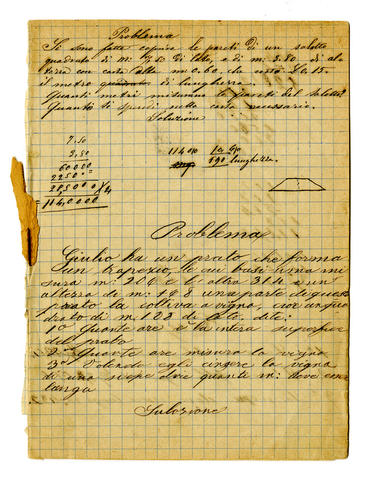 Problema
Si sono fatte coprire le pareti di un salotto
quadrato di m: 7.50 di lato, e di m: 3.80 di al
tezza con carta alta m 0.60, che costò L. 0.15
il metro di lunghezza.
Quanti metri misurano le pareti del salotto?
Quanto si spendi nella carta necessaria.
Soluzione
7,50
3,80
60000
2250
285000 X 4
1140000
11400
190 lunghezza.
Problema
Giulio ha un prato che forma
un trapezio, le cui basi una mi
sura m: 206 e l'altra 314 e un
altezza de m: 108 una parte di ques
prato la coltiva a vigna, cioè un qua
drato di m 122 di lato, dite:
1º Quante are è la intera superfice
del prato
2º Quante are misura la vigna
3º Volendo egli cingere la vigna
di una siepe dire quanti m: deve con
lunga
Suluzione